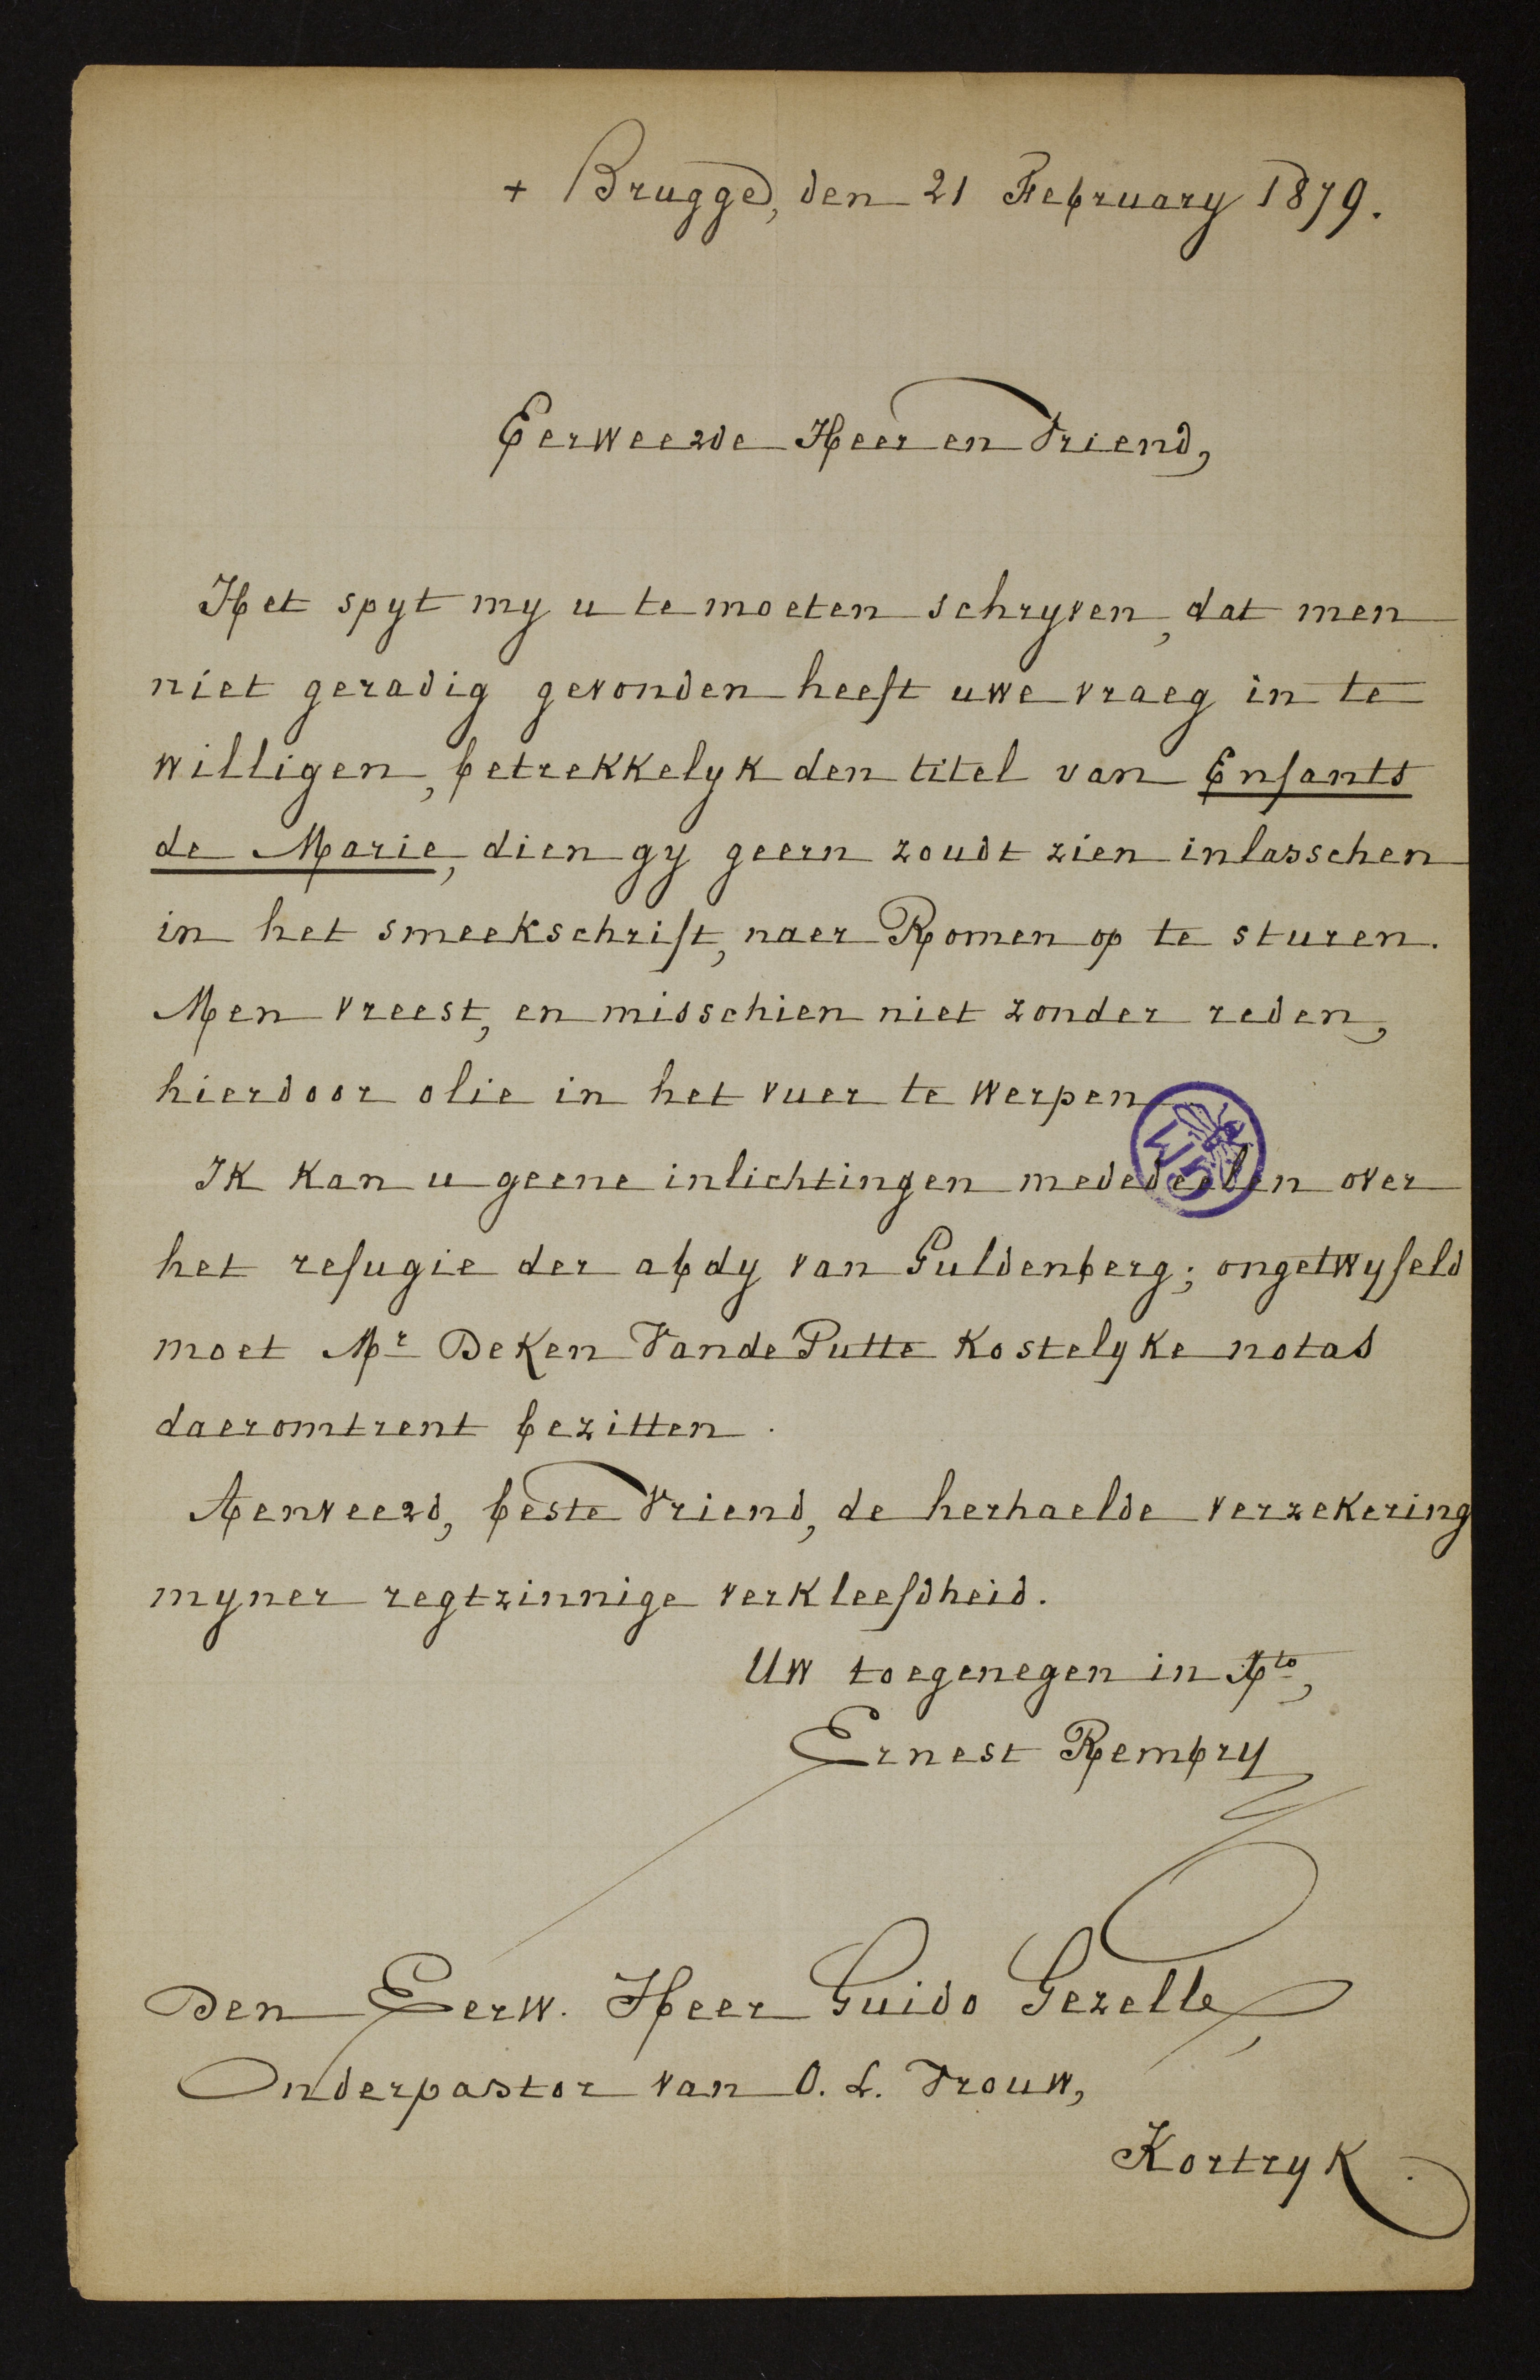 + Brugge, den 21 February 1879.
Eerweerde Heer en Vriend,
Het spyt my u te moeten schryven, dat men
niet geradig gevonden heeft uwe vraeg in te
willigen, betrekkelyk den titel van Enfants
de Marie, dien gy geern zoudt zien inlasschen
in het smeekschrift, naer Romen op te sturen.
Men vreest, en misschien niet zonder reden,
hierdoor olie in het vuer te werpen.
Ik kan u geene inlichtingen mededeelen over
het refugie der abdy van Guldenberg; ongetwyfeld
moet Mr Deken Vande Putte kostelyke notas
daeromtrent bezitten.
Aenveerd, beste Vriend, de herhaelde verzekering
myner regtzinnige verkleefdheid.
Uw toegenegen in Xto,
Ernest Rembry
Den Eerw. Heer Guido Gezelle
Onderpastor van O. L. Vrouw,
Kortryk.